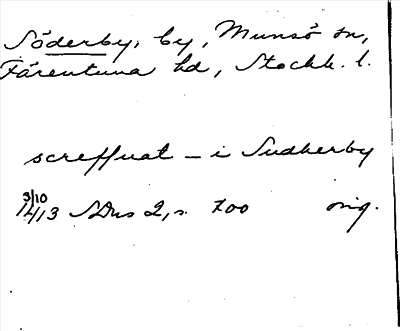 Söderby, by, Munsö sn,
Färentuna hd, Stockh. l.
screffuat – i Sudherby
3/10
1413 SDns 2, s. 700 orig.